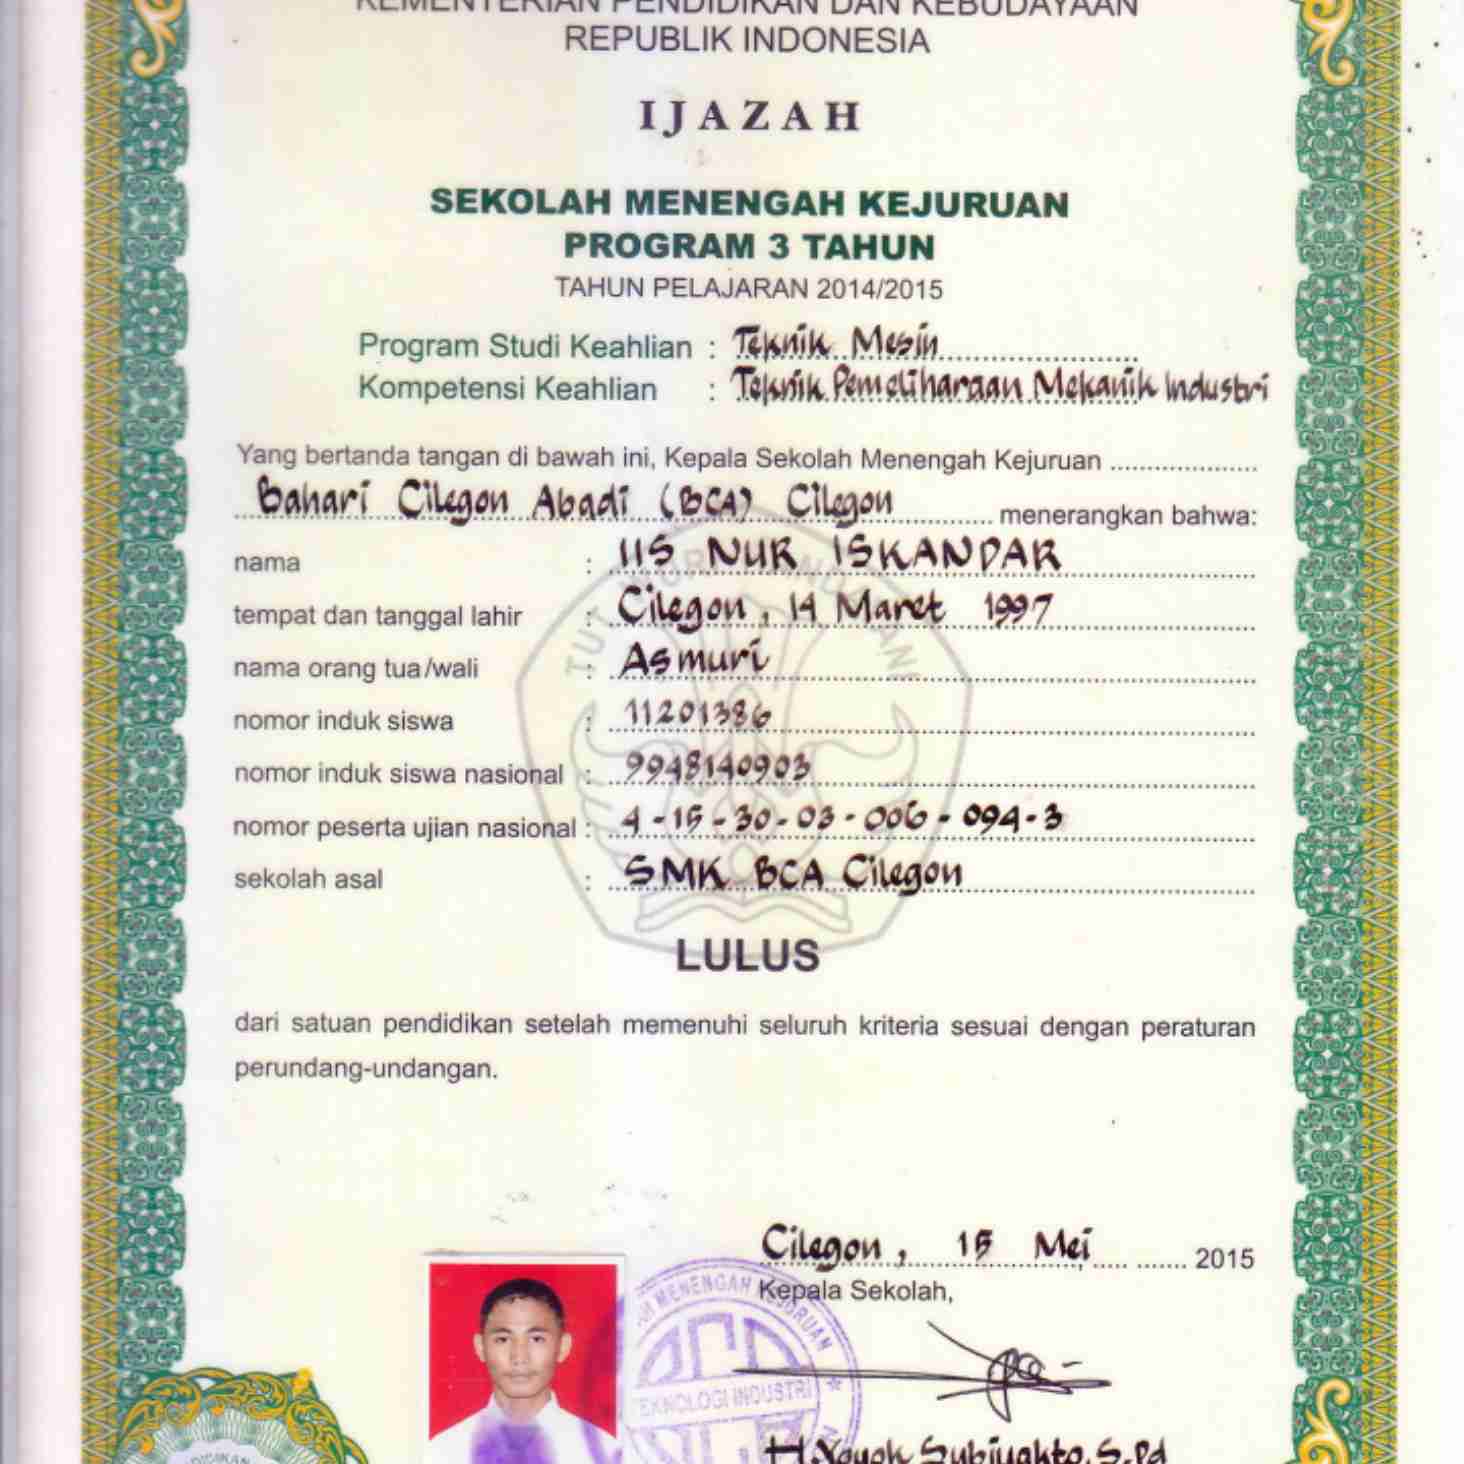 KEMENTERIAN PENDIDIKAN DAN KEBUDAYAAN
REPUBLIK INDONESIA
IJAZAH
SEKOLAH MENENGAH KEJURUAN
PROGRAM 3 TAHUN
TAHUN PELAJARAN 2014/2015
Program Studi Keahlian : Teknik Mesin
Kompetensi Keahlian : Teknik Pemeliharaan Mekanik Industri
Yang bertanda tangan di bawah ini, Kepala Sekolah Menengah Kejuruan
Bahari Cilegon Abadi (BCA) Cilegon menerangkan bahwa:
nama : IIS NUR ISKANDAR
tempat dan tanggal lahir : Cilegon, 14 Maret 1997
nama orang tua/wali : Asmuri
nomor induk siswa : 11201386
nomor induk siswa nasional : 9948140903
nomor peserta ujian nasional : 4-15-30-03-006-094-3
sekolah asal : SMK BCA Cilegon
LULUS
dari satuan pendidikan setelah memenuhi seluruh kriteria sesuai dengan peraturan
perundang-undangan.
Cilegon, 15 Mei 2015
Kepala Sekolah,
MENENGAH KEJURUAN
TEKNOLOGI INDUSTRI
H. Yoyok Subiyakto, S.Pd